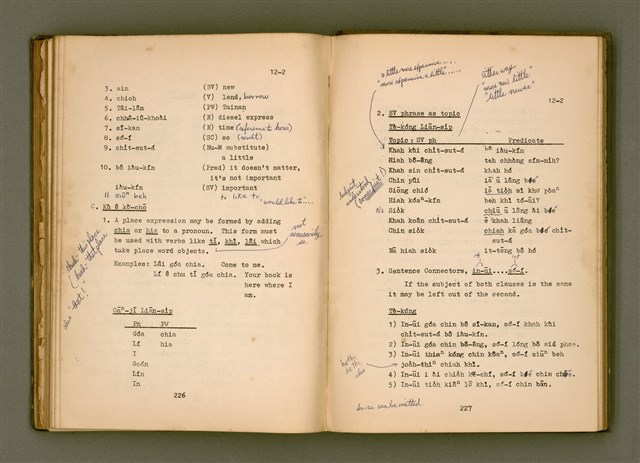 12-2
3. sin (SV) new
4. chioh (V) lend, borrow
5. Tâi-lâm (PW) Tainan
6. chhâ-iû-khoài (N) diesel express
7. sî-kan (N) time (reference to hours)
8. só͘-í (SC) so (result)
9. chi̍t-sut-á (Nu-M substitute)
a little
10. bô iàu-kín (Pred) it doesn't matter,
it's not important
iàu-kín (SV) important
11 beh to like to "would like to"...
C. Kù ê kò͘-chō
1. A place expression may be formed by adding
chia or hia to a pronoun. This form must
be used with verbs like tī, khì, lâi which
take place word objects.
not necessarily so.
Examples: Lâi góa chia. Come to me.
Lí ê chu tī góa chia. Your book is
here where I
am.
also "that!"
Càn-jī Liān-si̍p
Pn PW
Góa chia
Lí hia
I
Goán
Lín
In
226
"a little more expensive....
"more expensive a little"....
either way
"more new little"
"little newer"
12-2
2. SV phrase as topic
Tè-kóng Liān-si̍p
Topic: SV ph Predicate
Khah kùi chi̍t-sut-á bô iàu-kín
Hiah bô-êng teh chhòng sím-mih?
Khah sin chi̍t-sut-á khah hó
Chin pûi iā ū lâng bóe
Siōng chió iā tio̍h sì kho͘ pòaⁿ
Hiah hóaⁿ-kín beh khì tó-ūi?
Sio̍k chiū ū lâng ài bóe
Khah koân chi̍t-sut-á ē khah liâng
Chin sio̍k chiah kā góa bóe chi̍t-
sut-á
Ná hiah sio̍k it-tēng bô hó
3. Sentence Connectors, in-ūi....só͘-í.
If the subject of both clauses is the same
it may be left out of the second.
Tè-kóng
1) In-ūi góa chin bô sî-kan, só͘-í khah kùi
chi̍t-sut-á bô iàu-kín.
2) In-ūi góa chin bô-êng, só͘-í lóng bô siá phoe.
3) In-ūi thiaⁿ kóng chin kôaⁿ, só͘-í siūⁿ beh
joa̍h-thiⁿ chiah khì.
4) In-ūi i ài chia̍h ké-chí, só͘-í bóe chin chōe.
5) In-ūi tio̍h kiâⁿ lō͘ khì, só͘-í chin bān.
In-ūi can be omitted
227